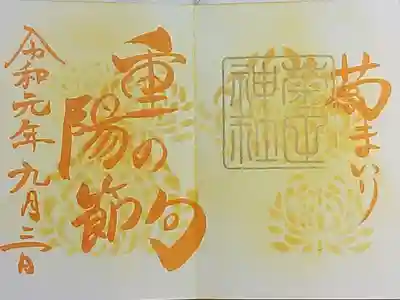 菊まいり
菊田
神社
重陽の節句
令和元年九月三日